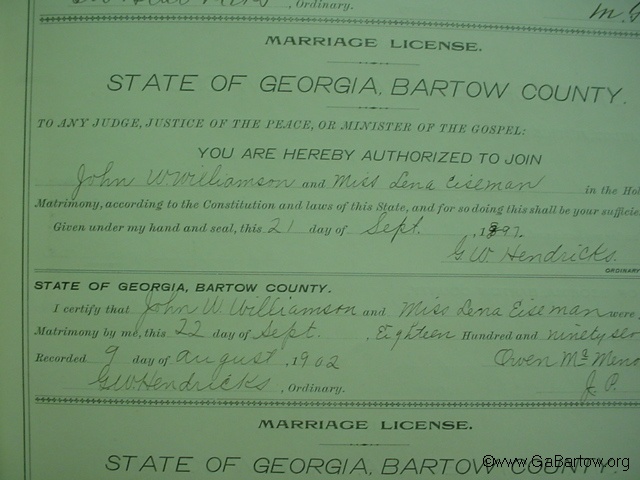 , Ordinary.
MARRIAGE LICENSE.
STATE OF GEORGIA, BARTOW COUNTY.
TO ANY JUDGE, JUSTICE OF THE PEACE, OR MINISTER OF THE GOSPEL:
YOU ARE HEREBY AUTHORIZED TO JOIN
John W. Williamson and Miss Lena Eiseman in the Hol
Matrimony, according to the Constitution and laws of this State, and for so doing this shall be your suffici
Given under my hand and seal, this 21 day of Sept. , 1897.
G.W. Hendricks.
ORDINARY
STATE OF GEORGIA, BARTOW COUNTY.
I certify that John W. Williamson and Miss Lena Eiseman were
Matrimony by me, this 22 day of Sept. , Eighteen Hundred and ninety sev
Recorded 9 day of August , 1902 Owen
G.W. Hendricks , Ordinary. J. P.
MARRIAGE LICENSE.
STATE OF GEORGIA, BARTOW COUNTY.
©www.GaBartow.org